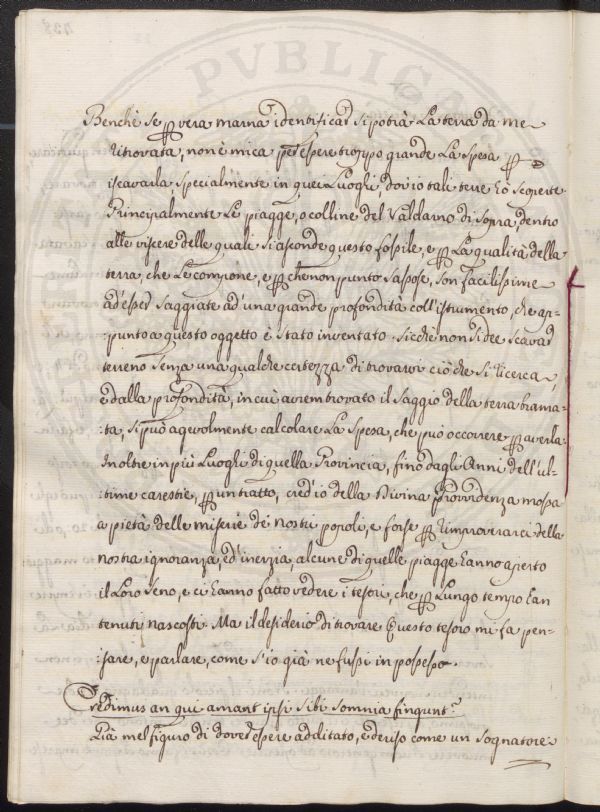 Benchè se ꝑ vera marna identificar si potrà La terra da me
ritrovata, non è mica per essere troppo grande La spesa ꝑ
iscavarla specialmente in quei Luoghi, dov'io tali terre hò scoperte
Principalmente Le piagge, o colline del Valdarno di sopra, dentro
alle viscere delle quali si asconde questo fossile, e ꝑ La qualità della
terra, che Le compone, e ꝑ che non punto sassose, son facilissime
ad'esser saggiate ad'una grande profondità coll'istrumento, che ap-
punto a questo oggetto è stato inventato. sicchè non si dee scavar
terreno senza una qualche certezza di trovarvi ciò che si ricerca,
e dalla profondità, in cui avrem trovato il saggio della terra brama-
ta, si può agevolmente calcolare La spesa, che può occorrere ꝑ averla.
Inoltre in più Luoghi di quella Provincia, fino dagli Anni dell'ul-
time carestie, ꝑ un tratto, cred'io della Divina Provvidenza mossa
a pietà delle miserie de' nostri popoli, e forse ꝑ rimproverarci della
nostra ignoranza, ed'inerzia, alcune di quelle piagge hanno aperto
il Loro seno, e ci hanno fatto vedere i tesori, che ꝑ Lungo tempo han
tenuti nascosti. Ma il desiderio di trovare Questo tesoro mi fa pen-
sare, e parlare, come s'io già ne fussi in possesso.
Credimus an qui amant ipsi sibi somnia fingunt?
Già mel figuro di dover essere additato, e deriso come un sognatore